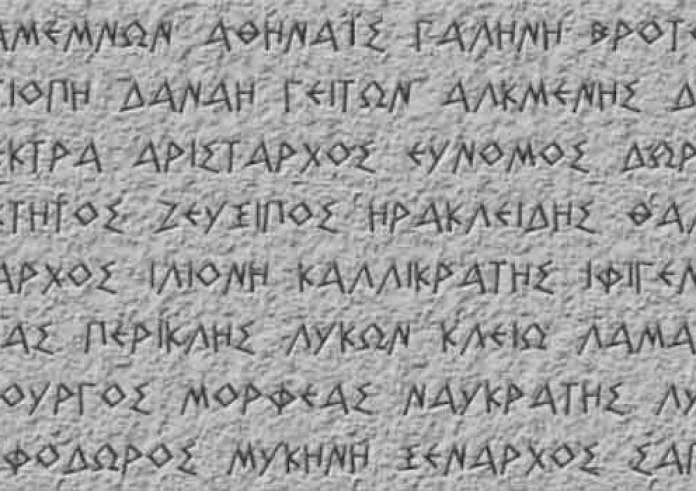 ΑΜΕΜΝΩΝ ΑΘΗΝΑΪΣ ΓΑΛΗΝΗ ΒΡΟΤ
ΙΟΠΗ ΔΑΝΑΗ ΓΕΙΤΩΝ ΑΛΚΜΕΝΗΣ Δ
ΕΚΤΡΑ ΑΡΙΣΤΑΡΧΟΣ ΕΥΝΟΜΟΣ ΔΩΡ
ΤΗΓΟΣ ΖΕΥΞΙΠΟΣ ΗΡΑΚΛΕΙΔΗΣ ΘΑΛ
ΑΡΧΟΣ ΙΛΙΟΝΗ ΚΑΛΛΙΚΡΑΤΗΣ ΙΦΙΓΕΝ
ΑΣ ΠΕΡΙΚΛΗΣ ΛΥΚΩΝ ΚΛΕΙΩ ΛΑΜΑ
ΟΥΡΓΟΣ ΜΟΡΦΕΑΣ ΝΑΥΚΡΑΤΗΣ ΛΥ
ΦΟΔΩΡΟΣ ΜΥΚΗΝΗ ΞΕΝΑΡΧΟΣ ΣΑΠ